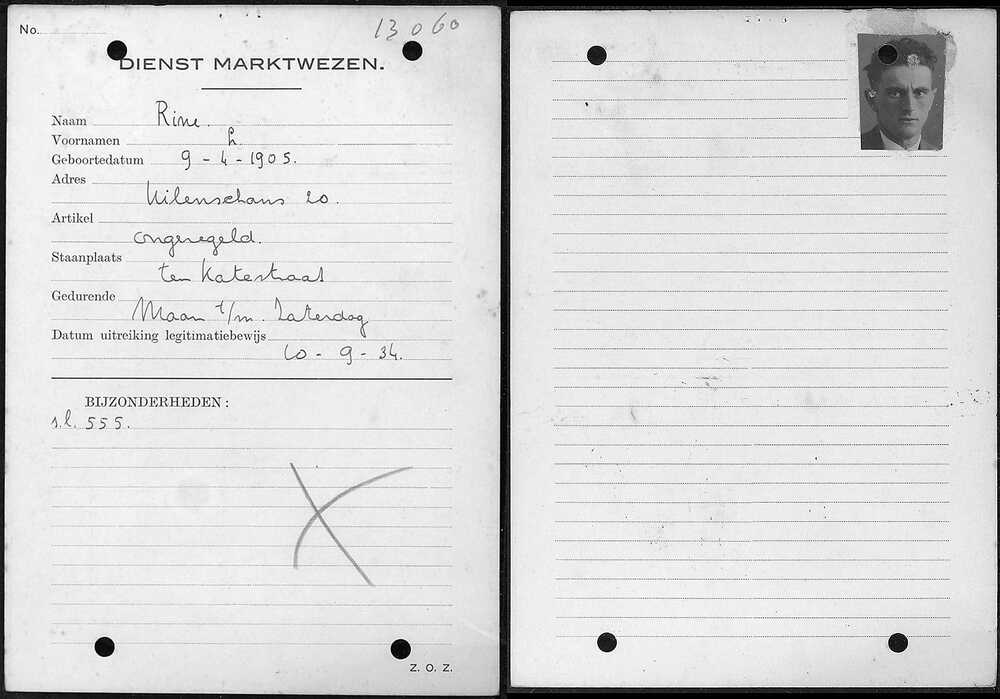 No. 13060
DIENST MARKTWEZEN.
Naam Rine.
Voornamen L.
Geboortedatum 9 - 4 - 1905.
Adres
Uilenschans 20.
Artikel
ongeregeld.
Staanplaats
ten Katestraat
Gedurende
Maan t/m. Zaterdag
Datum uitreiking legitimatiebewijs
10 - 9 - 34.
BIJZONDERHEDEN :
s.l. 555.
Z. O. Z.